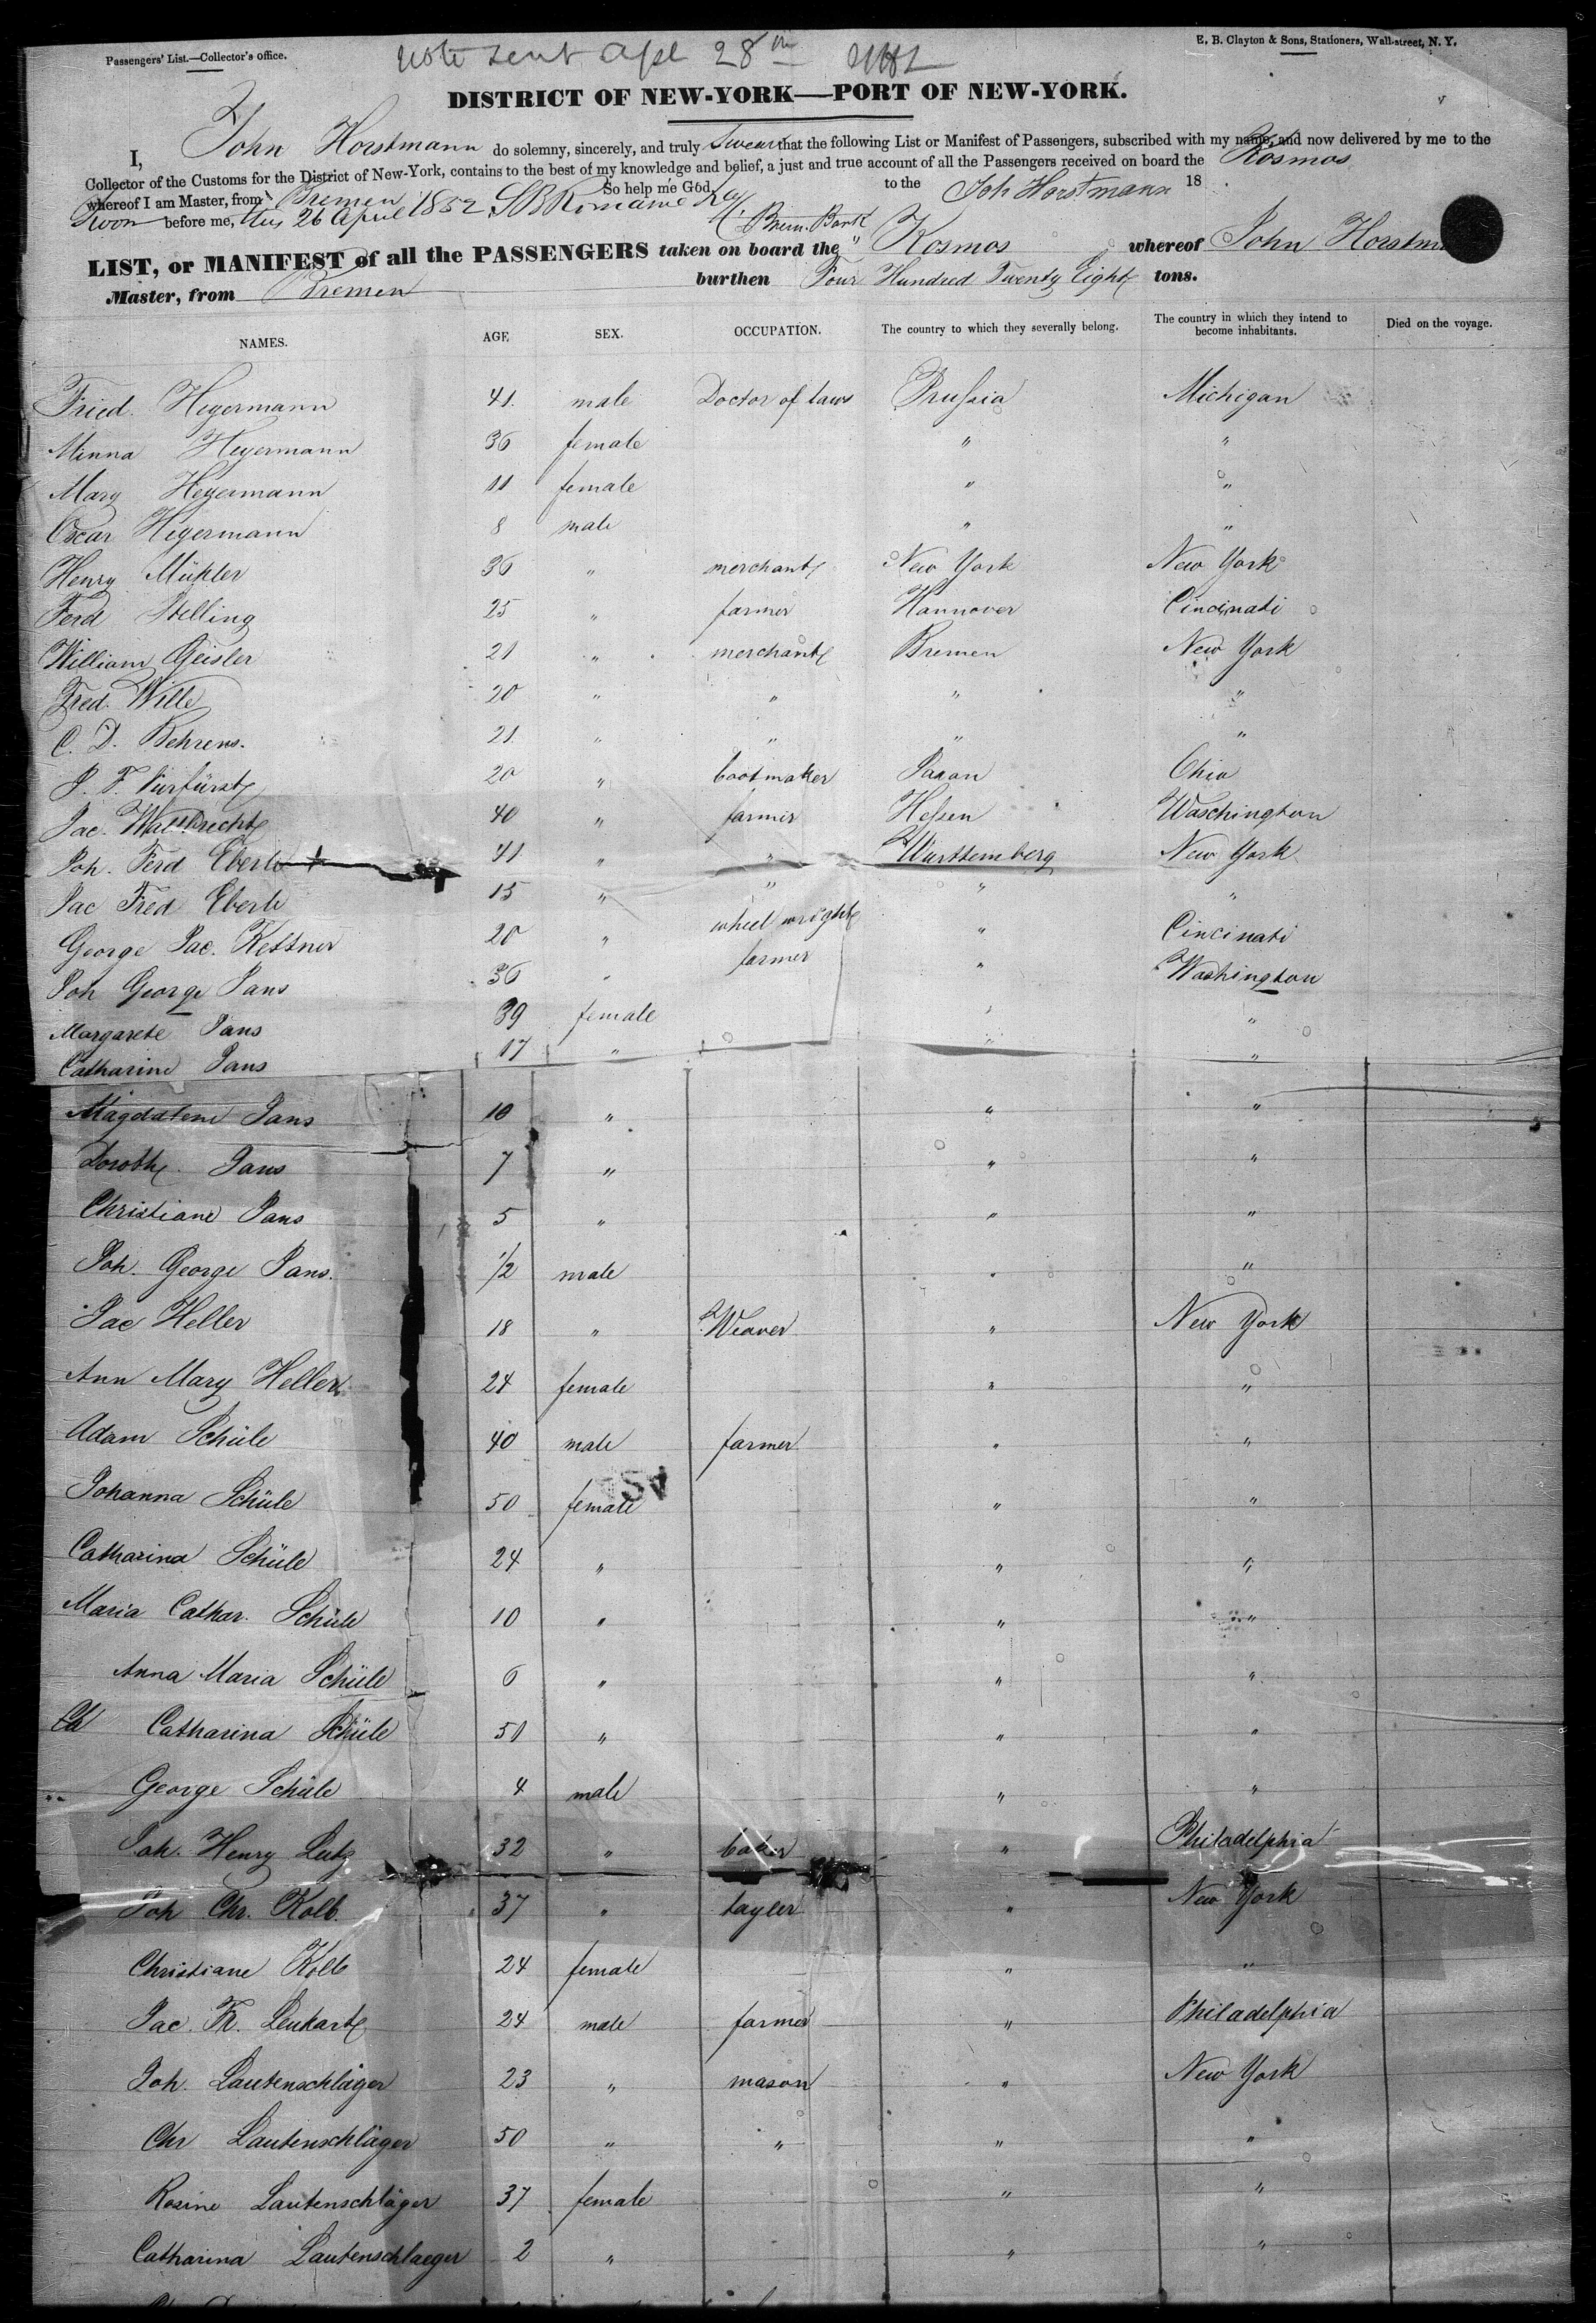 Passengers' List.—Collector's office.
Note sent Apl 28th
E. B. Clayton & Sons, Stationers, Wall-street, N. Y.
DISTRICT OF NEW-YORK—PORT OF NEW-YORK.
I, John Horstmann do solemny, sincerely, and truly Swear that the following List or Manifest of Passengers, subscribed with my name, and now delivered by me to the
Collector of the Customs for the District of New-York, contains to the best of my knowledge and belief, a just and true account of all the Passengers received on board the Kosmos
whereof I am Master, from Bremen So help me God to the Joh Horstmann 18
Sworn before me, this 26 April 1852
LIST, or MANIFEST of all the PASSENGERS taken on board the Brem. Bark Kosmos whereof John Horstm
Master, from Bremen burthen Four Hundred Twenty Eight tons.
NAMES. AGE SEX. OCCUPATION. The country to which they severally belong. The country in which they intend to become inhabitants. Died on the voyage.
Fried. Hegermann 41. male Doctor of laws Prussia Michigan
Minna Hegermann 36 female " "
Mary Hegermann 11 female " "
Oscar Hegermann 8 male " "
Henry Mühler 36 " merchant New York New York
Ferd Stelling 25 " farmer Hannover Cincinati
William Geisler 21 " merchant Bremen New York
Fred. Wille 20 " " " "
C. D. Behrens. 21. " " " "
J. F. 20 " bootmaker Ohio
Jac. Wallbrecht 40 " farmer Hessen Waschington
Joh. Ferd Eberle 41 " " Wurttemberg New York
Jac Fred Eberle 15 " " " "
George Jac. Kettner 20 " wheel wright " Cincinati
Joh George Jans 36 " farmer " Washington
Margarete Jans 39 female " "
Catharine Jans 17 " " "
Magdalene Jans 10 " " "
Doroth. Jans 7 " " "
Christiane Jans 5 " " "
Joh. George Jans. 1/2 male " "
Jac Heller 18 " Weaver " New York
Ann Mary Heller 24 female " "
Adam Schüle 40 male farmer " "
Johanna Schüle 50 female " "
Catharina Schüle 24 " " "
Maria Cathar. Schüle 10 " " "
Anna Maria Schüle 6 " " "
Catharina Schüle 50 " " "
George Schüle 4 male " "
Joh. Henry Lutz 32 " baker " Philadelphia
Joh Chr. Kolb. 37 " tayler " New York
Christiane Kolb 24 female " "
Jac. Fr. Leukart 24 male farmer " Philadelphia
Joh. Lautenschläger 23 " mason " New York
Chr Lautenschläger 50 " " " "
Rosine Lautenschläger 37 female " "
Catharina Lautenschlaeger 2 " " "